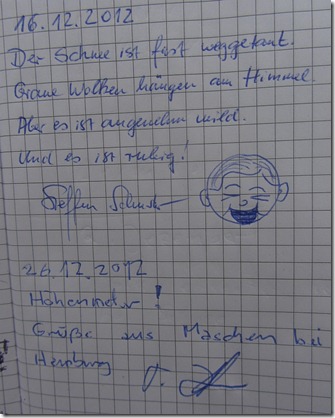 16.12.2012
Der Schnee ist fast weggetaut.
Graue Wolken hängen am Himmel.
Aber es ist angenehm mild.
Und es ist ruhig!
Steffen
26.12.2012
Höhenmeter!
Grüße aus Maschen bei
Hamburg